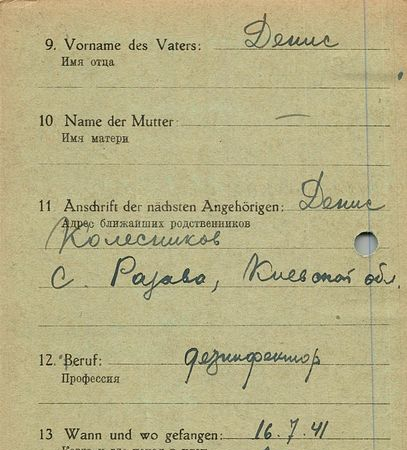 9. Vorname des Vaters: Денис
Имя отца
10 Name der Mutter —
Имя матери
11 Anschrift der nächsten Angehörigen: Денис
Адрес ближайших родственников
Колесников
с. Разава, Киевской обл.
12. Beruf: дезинфектор
Профессия
13 Wann und wo gefangen: 16.7.41